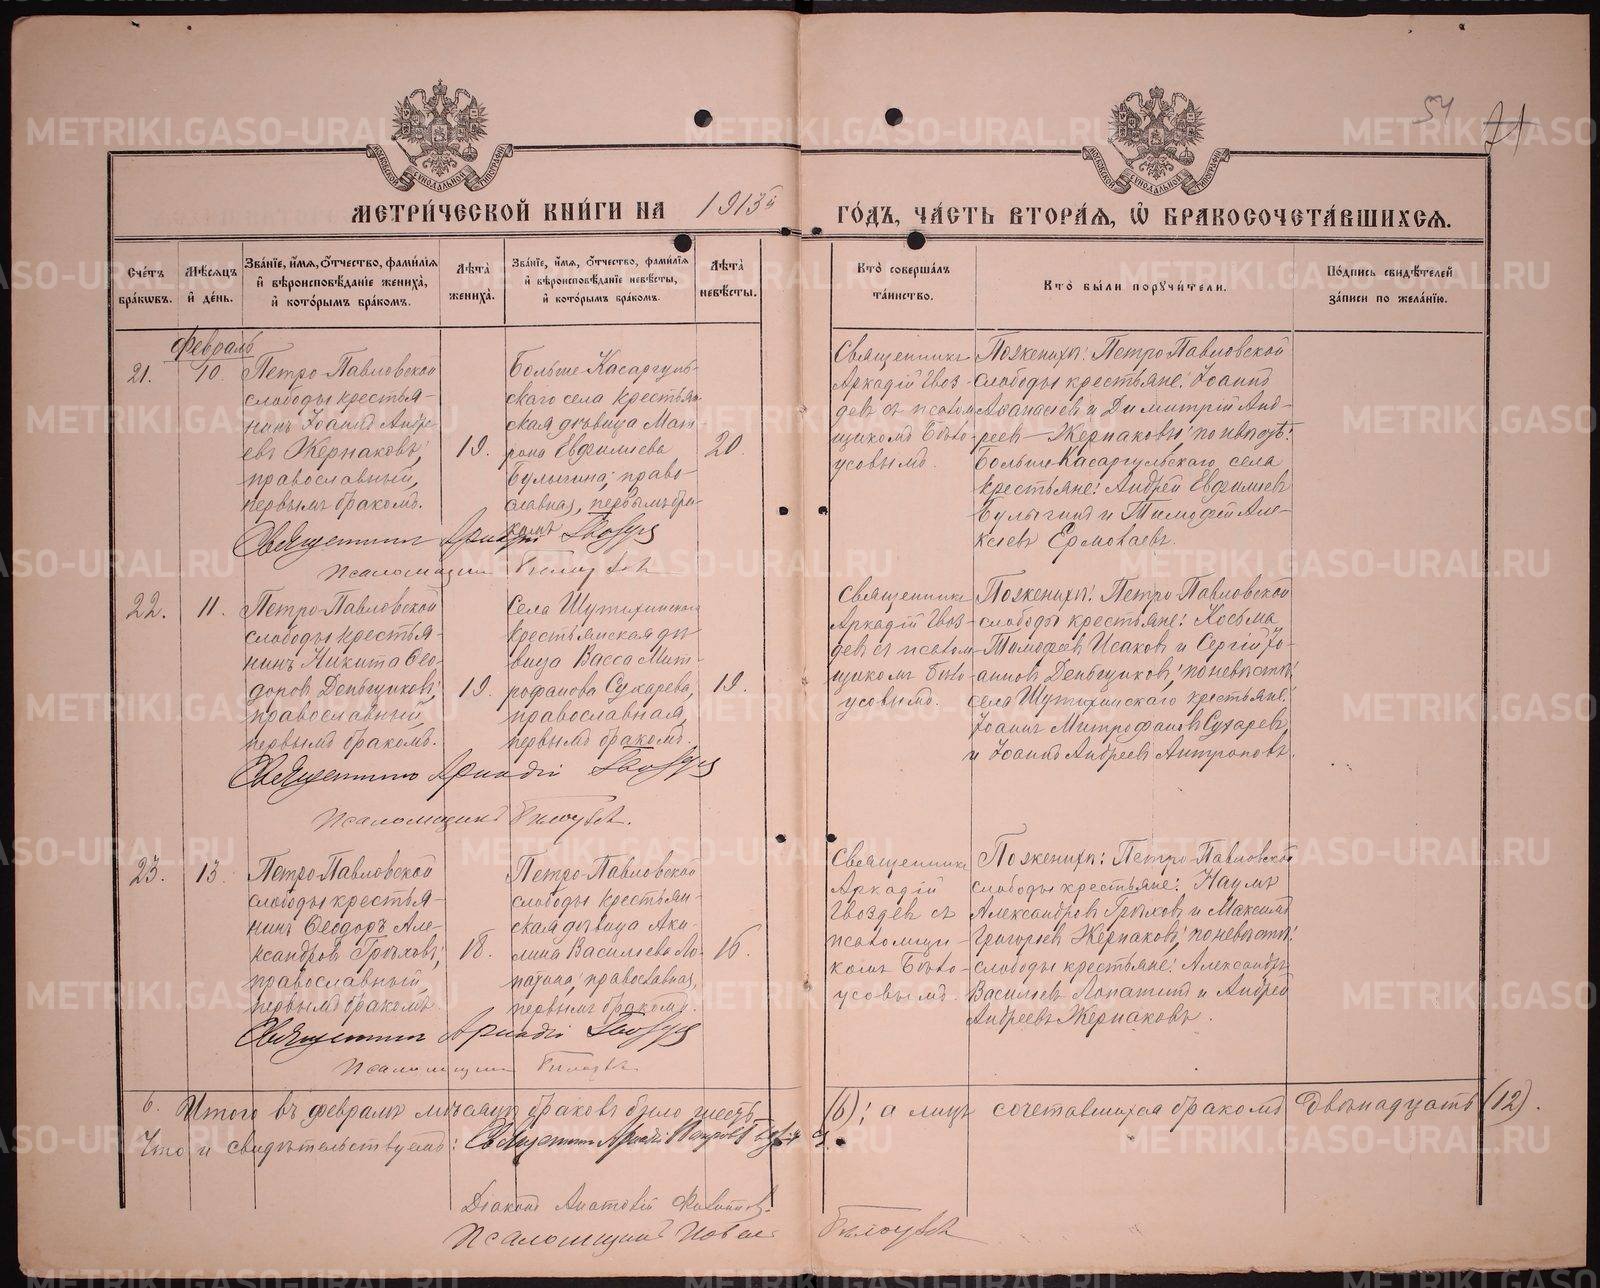 МЕТРИЧЕСКОЙ КНИГИ НА 1913й ГОДЪ, ЧАСТЬ ВТОРАЯ, Ѡ БРАКОСОЧЕТАВШИХСЯ.
54
71
Счетъ браковъ.
Мѣсяцъ и день.
Званіе, имя, отчество, фамилія и вѣроисповѣданіе жениха, и которымъ бракомъ.
Лѣта жениха.
Званіе, имя, отчество, фамилія и вѣроисповѣданіе невѣсты, и которымъ бракомъ.
Лѣта невѣсты.
Кто совершалъ таинство.
Кто были поручители.
Подпись свидѣтелей записи по желанію.
Февраль
21.
10.
Петро-Павловской
слободы крестья-
нинъ Іоаннъ Андре-
евъ Жернаковъ,
православный,
первымъ бракомъ.
19.
Больше-Касаргуль-
скаго села крестьян
ская дѣвица Мат-
рона Евфиміева
Булыгина, право-
славная, первымъ бра-
комъ
20.
Священникъ
Аркадій Гвоз-
девъ съ псалом-
щикомъ Бѣло-
усовымъ.
По женихѣ: Петро-Павловской
слободы крестьяне: Іоаннъ
Аѳанасіевъ и Димитрій Анд-
реевъ Жернаковы; по невѣстѣ:
Больше-Касаргульскаго села
крестьяне: Андрей Евфиміевъ
Булыгинъ и Тимоѳей Але-
ксіевъ Ермолаевъ.
Священникъ Аркадій Гвоздевъ
Псаломщикъ Бѣлоусовъ
22.
11.
Петро-Павловской
слободы крестья-
нинъ Никита Ѳео-
доровъ Деньщиковъ,
православный,
первымъ бракомъ.
19.
Села Шутихинскаго
крестьянская дѣ-
вица Васса Мит-
рофанова Сухарева,
православная,
первымъ бракомъ.
19.
Священникъ
Аркадій Гвоз-
девъ съ псалом-
щикомъ Бѣло-
усовымъ.
По женихѣ: Петро-Павловской
слободы крестьяне: Косьма
Тимоѳеевъ Исаковъ и Сергій Іо-
анновъ Деньщиковъ; по невѣстѣ:
села Шутихинскаго крестьяне:
Іоаннъ Митрофановъ Сухаревъ
и Іоаннъ Андреевъ Антроповъ.
Священникъ Аркадій Гвоздевъ
Псаломщикъ Бѣлоусовъ.
23.
13.
Петро-Павловской
слободы крестья-
нинъ Ѳеодоръ Але-
ксандровъ Грѣховъ,
православный,
первымъ бракомъ.
18.
Петро-Павловской
слободы крестьян-
ская дѣвица Аки-
лина Васильева Ло-
патина, православная,
первымъ бракомъ.
16.
Священникъ
Аркадій
Гвоздевъ съ
псаломщи-
комъ Бѣло-
усовымъ.
По женихѣ: Петро-Павловской
слободы крестьяне: Наумъ
Александровъ Грѣховъ и Максимъ
Григорьевъ Жернаковъ; по невѣстѣ:
слободы крестьяне: Александръ
Васильевъ Лопатинъ и Андрей
Андреевъ Жернаковъ.
Священникъ Аркадій Гвоздевъ
Псаломщикъ Бѣлоусовъ
6. Итого въ февралѣ мѣсяцѣ браковъ было шесть (6); а лицъ сочетавшихся бракомъ двѣнадцать (12).
Что и свидѣтельствуемъ: Священникъ
Діаконъ Анатолій
Псаломщикъ Павелъ Бѣлоусовъ
METRIKI.GASO-URAL.RU